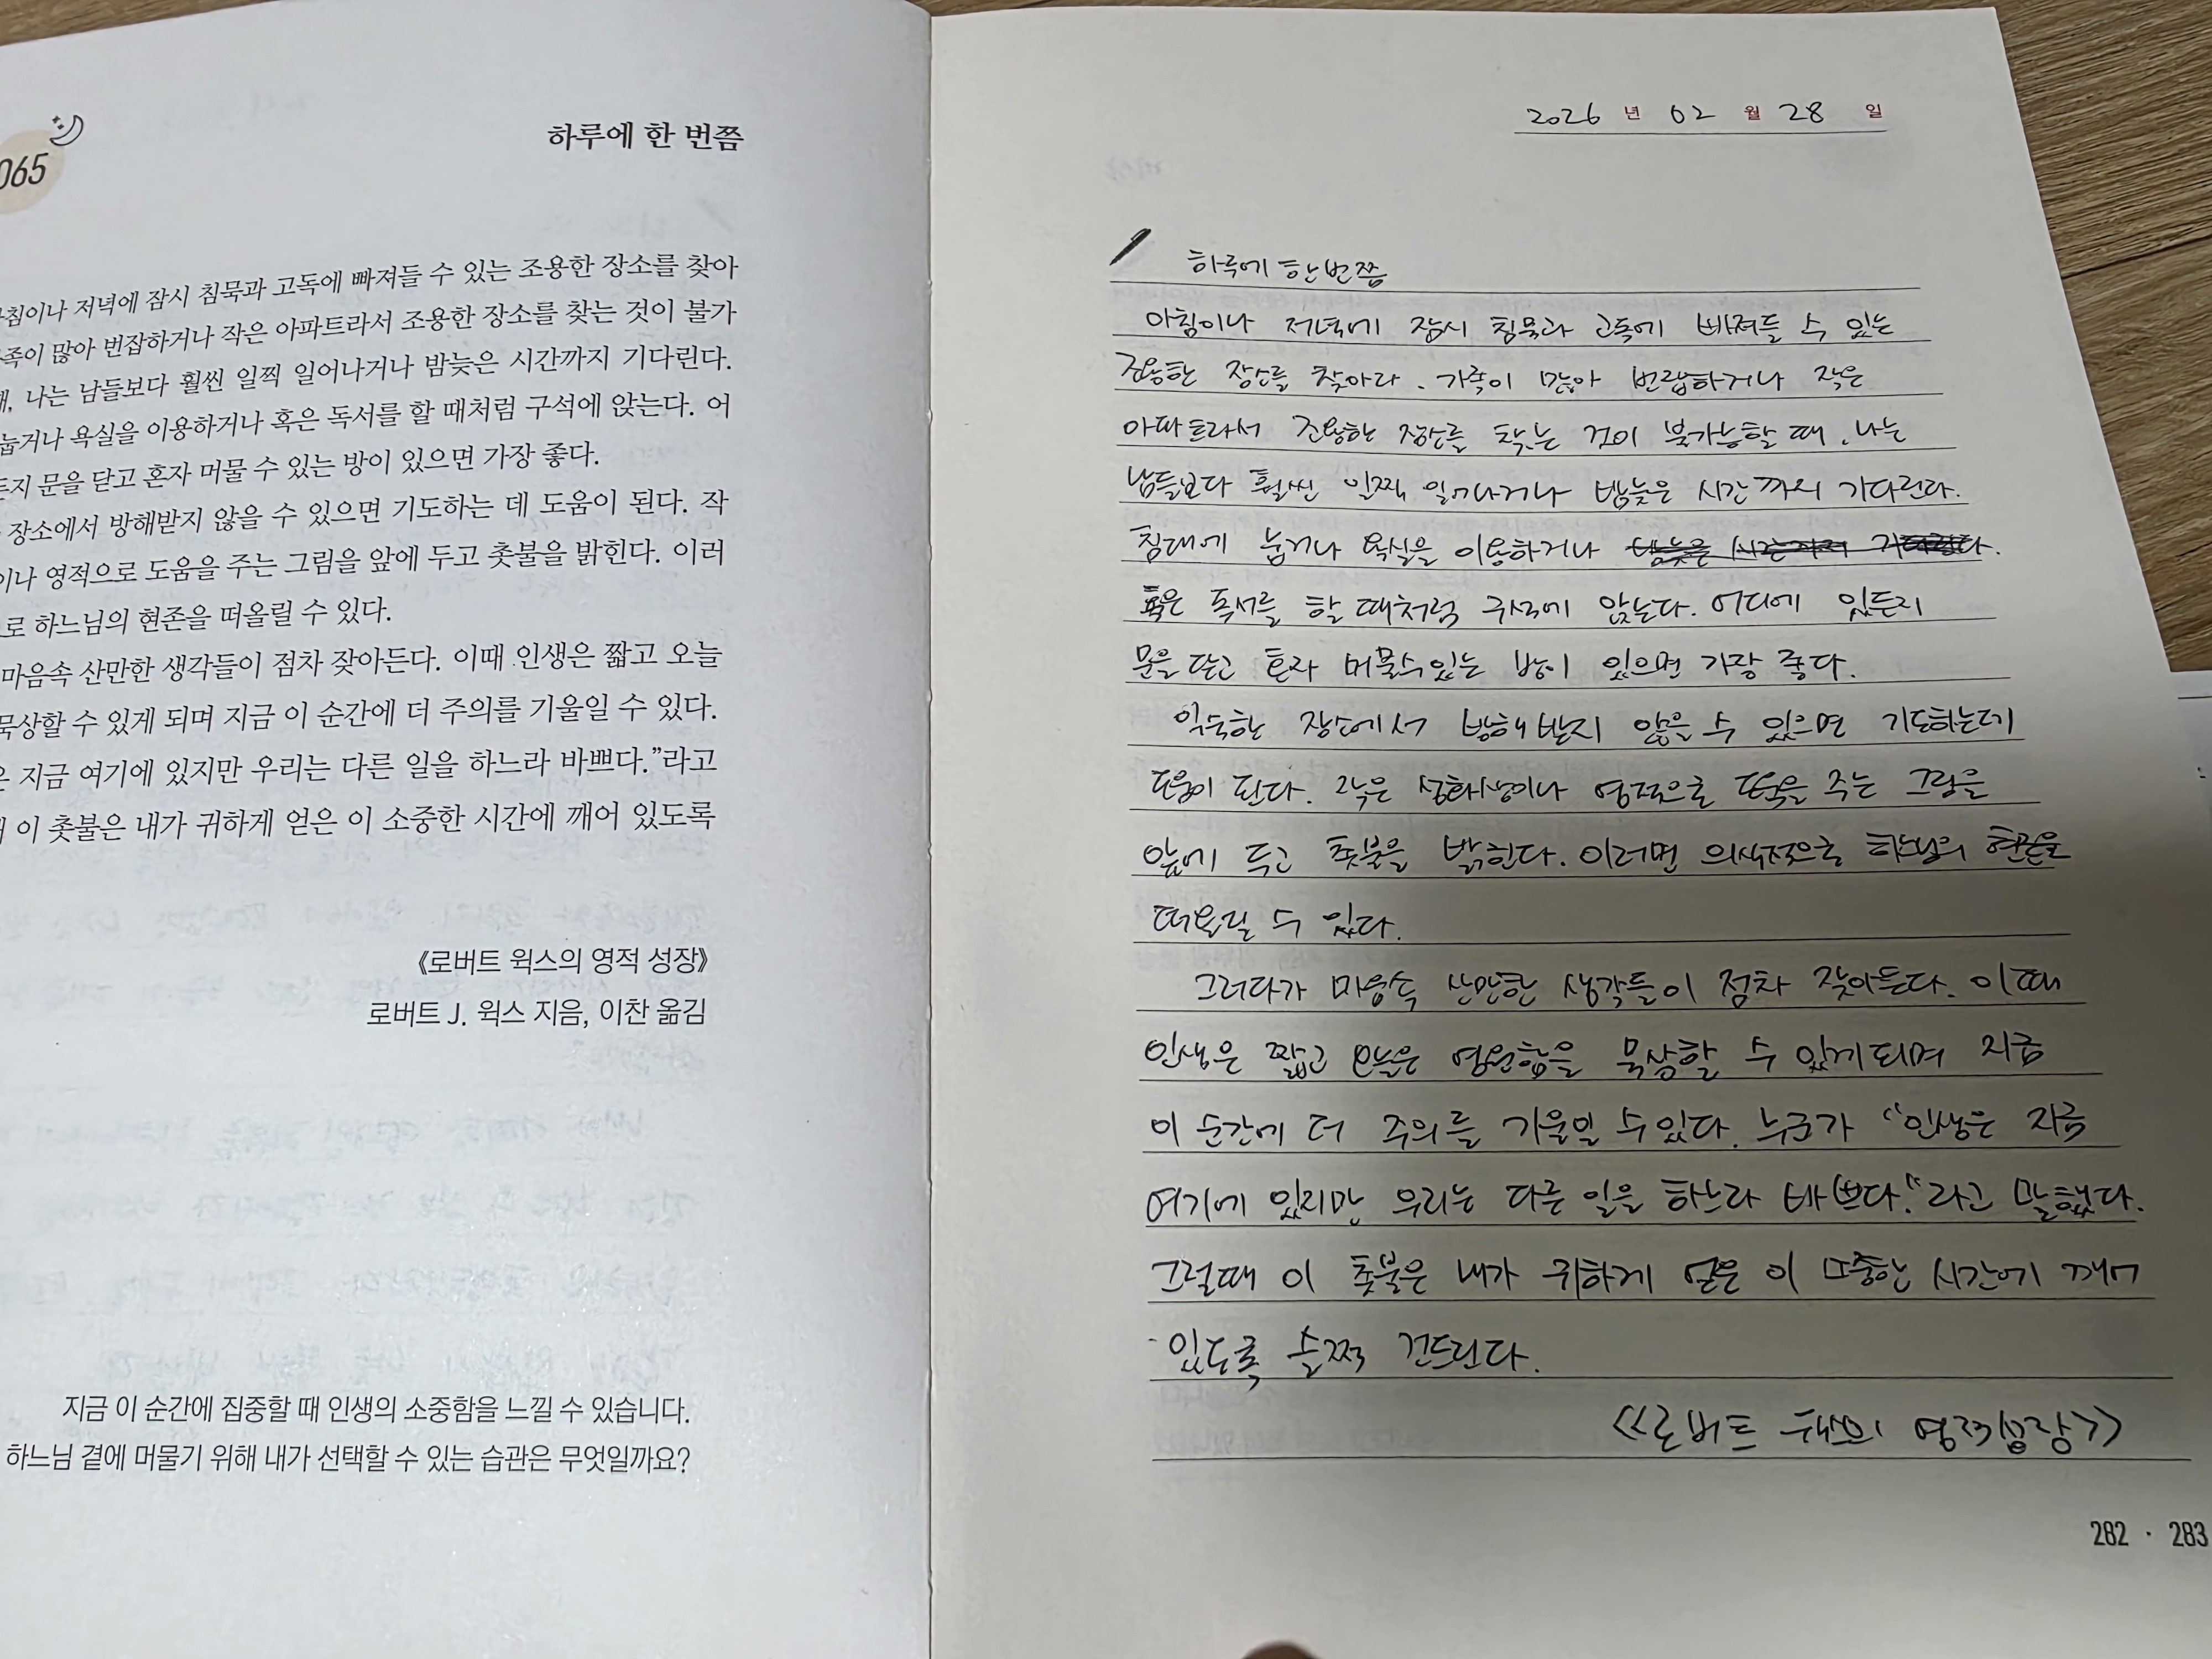 065
하루에 한 번쯤
침이나 저녁에 잠시 침묵과 고독에 빠져들 수 있는 조용한 장소를 찾아
족이 많아 번잡하거나 작은 아파트라서 조용한 장소를 찾는 것이 불가
, 나는 남들보다 훨씬 일찍 일어나거나 밤늦은 시간까지 기다린다.
눕거나 욕실을 이용하거나 혹은 독서를 할 때처럼 구석에 앉는다. 어
든지 문을 닫고 혼자 머물 수 있는 방이 있으면 가장 좋다.
장소에서 방해받지 않을 수 있으면 기도하는 데 도움이 된다. 작
이나 영적으로 도움을 주는 그림을 앞에 두고 촛불을 밝힌다. 이러
로 하느님의 현존을 떠올릴 수 있다.
마음속 산만한 생각들이 점차 잦아든다. 이때 인생은 짧고 오늘
묵상할 수 있게 되며 지금 이 순간에 더 주의를 기울일 수 있다.
은 지금 여기에 있지만 우리는 다른 일을 하느라 바쁘다.”라고
이 촛불은 내가 귀하게 얻은 이 소중한 시간에 깨어 있도록
《로버트 윅스의 영적 성장》
로버트 J. 윅스 지음, 이찬 옮김
지금 이 순간에 집중할 때 인생의 소중함을 느낄 수 있습니다.
하느님 곁에 머물기 위해 내가 선택할 수 있는 습관은 무엇일까요?
2026 년 02 월 28 일
하루에 한번쯤
아침이나 저녁에 잠시 침묵과 고독에 빠져들 수 있는
조용한 장소를 찾아라. 가족이 많아 번잡하거나 작은
아파트라서 조용한 장소를 찾는 것이 불가능할 때, 나는
남들보다 훨씬 일찍 일어나거나 밤늦은 시간까지 기다린다.
침대에 눕거나 욕실을 이용하거나 밤늦은 시간까지 기다린다.
혹은 독서를 할 때처럼 구석에 앉는다. 어디에 있든지
문을 닫고 혼자 머물수있는 방이 있으면 가장 좋다.
익숙한 장소에서 방해받지 않을 수 있으면 기도하는데
도움이 된다. 작은 성화상이나 영적으로 도움을 주는 그림을
앞에 두고 촛불을 밝힌다. 이러면 의식적으로 하느님의 현존을
떠올릴 수 있다.
그러다가 마음속 산만한 생각들이 점차 잦아든다. 이때
인생은 짧고 오늘은 영원함을 묵상할 수 있게되며 지금
이 순간에 더 주의를 기울일 수있다. 누군가 “인생은 지금
여기에 있지만 우리는 다른 일을 하느라 바쁘다.”라고 말했다.
그럴때 이 촛불은 내가 귀하게 얻은 이 소중한 시간에 깨어
있도록 슬쩍 건드린다.
《로버트 윅스의 영적성장》
282 · 283